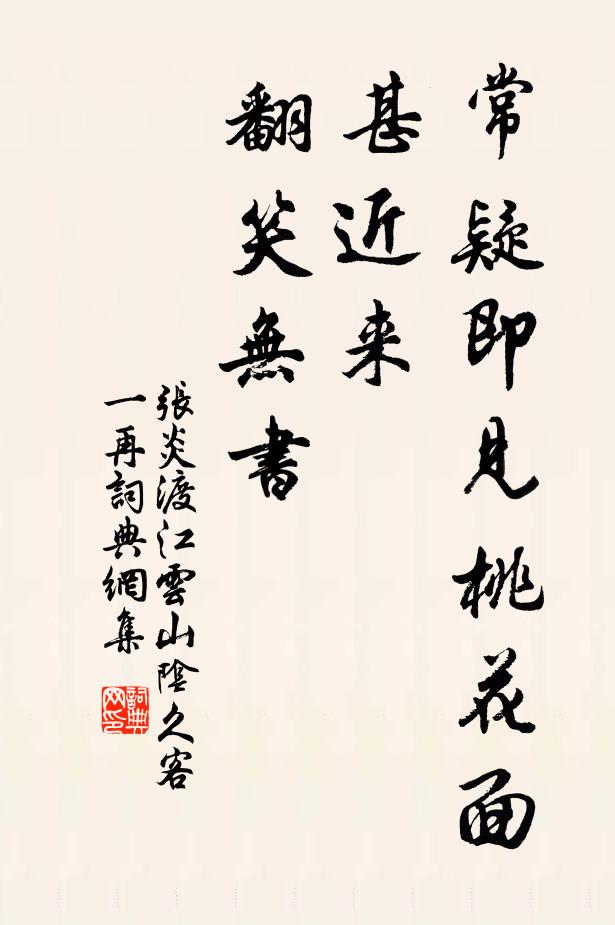 常疑即見桃花面
甚近来
翻笑無書
張炎渡江雲山陰久客
一再詞典網集
詞典網印